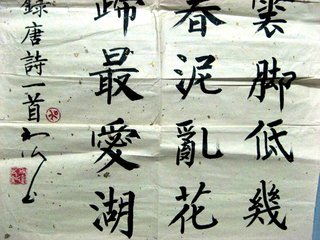 雲脚低幾
春泥亂花
蹄最愛湖
錄唐詩一首